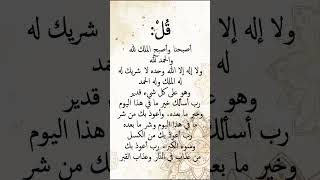 قُلْ:
أصبحنا وأصبح الملك لله
والحمد لله
ولا إله إلا الله وحده لا شريك له
له الملك وله الحمد
وهو على كل شيء قدير
رب أسألك خير ما في هذا اليوم
وخير ما بعده، وأعوذ بك من شر
ما في هذا اليوم وشر ما بعده
رب أعوذ بك من الكسل
وسوء الكبر، رب أعوذ بك
من عذاب في النار وعذاب القبر
ولا إله إلا الله وحده لا شريك له
وخير ما بعده، وأعوذ بك من شر